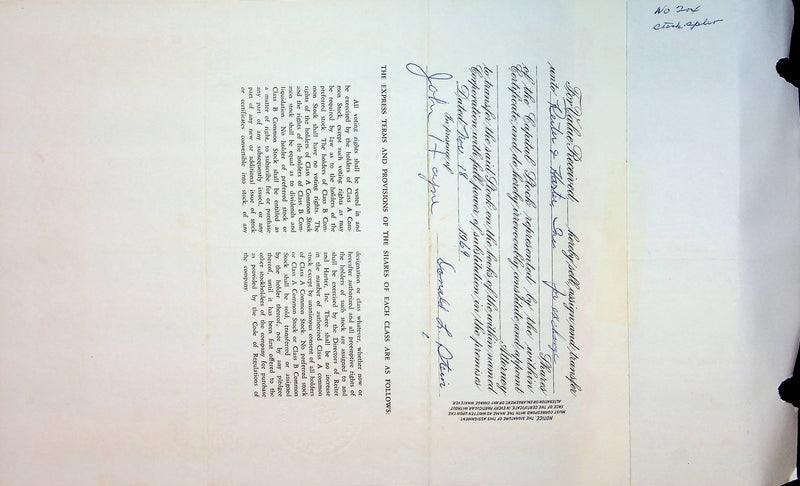 No 204
Stock Split
For Value Received hereby sell, assign and transfer
unto Reiter & Harter Inc. for exchange
Shares
of the Capital Stock represented by the within
Certificate, and do hereby irrevocably constitute and appoint
Attorney
to transfer the said Stock on the books of the within named
Corporation with full power of substitution in the premises
Dated Nov 18 1969
In presence of
John Hayne Donald L. Stein
NOTICE, THE SIGNATURE OF THIS ASSIGNMENT
MUST CORRESPOND WITH THE NAME AS WRITTEN UPON THE
FACE OF THE CERTIFICATE, IN EVERY PARTICULAR, WITHOUT
ALTERATION OR ENLARGEMENT, OR ANY CHANGE WHATEVER.
THE EXPRESS TERMS AND PROVISIONS OF THE SHARES OF EACH CLASS ARE AS FOLLOWS:
All voting rights shall be vested in and
be exercised by the holders of Class A Com-
mon Stock, except such voting rights as may
be required by law as to the holders of the
preferred stock. The holders of Class B Com-
mon Stock shall have no voting rights. The
rights of the holders of Class A Common Stock
and the rights of the holders of Class B Com-
mon stock shall be equal as to dividends and
liquidation. No holder of preferred stock or
Class B Common Stock shall be entitled as
a matter of right, to subscribe for or purchase
any part of any subsequently issued, or any
part of any new or additional issue of stock
or certificates convertible into stock, of any
designation or class whatever, whether now or
hereafter authorized and all preemptive rights of
the holders of such stock are assigned to and
shall be exercised by the Directors of Reiter
and Harter, Inc. There shall be no increase
in the number of authorized Class A common
stock except by unanimous consent of all holders
of Class A Common Stock. No preferred stock
or Class A Common Stock or Class B Common
Stock shall be sold, transferred or assigned
by the holder thereof, not by any pledgee
thereof, until it has been first offered to the
other stockholders of the company for purchase
as provided by the Code of Regulations of
the company